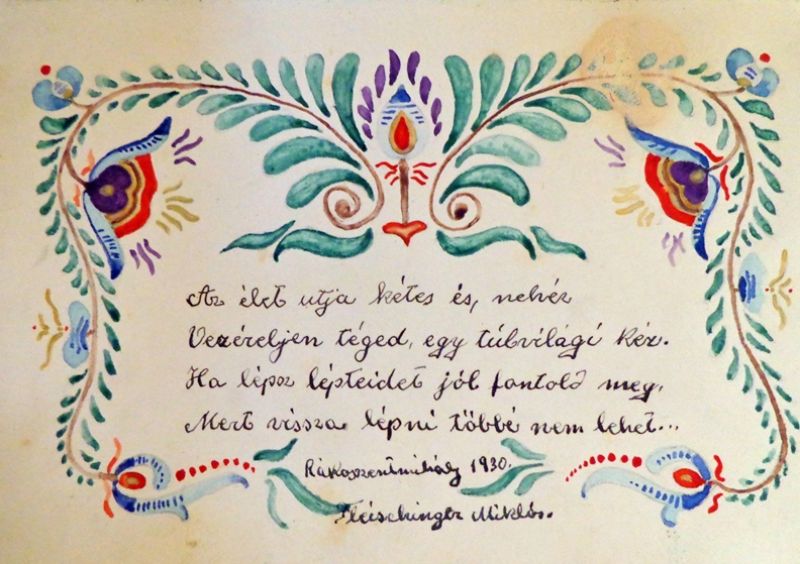 Az élet utja kétes és, nehéz
Vezéreljen téged, egy túlvilági kéz.
Ha lépsz lépteidet jól fontold meg,
Mert vissza lépni többé nem lehet...
Rákoszentmihály 1930.
Fleischinger Miklós.